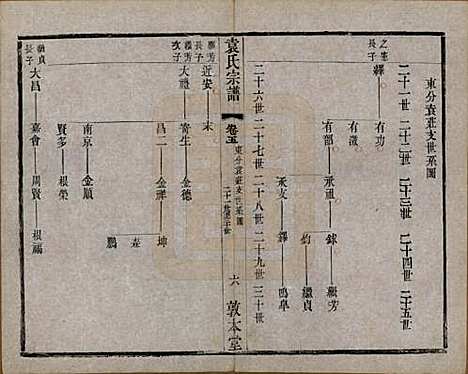 東分袁莊支世系圖
二十一世 二十二世 二十三世 二十四世 二十五世
之憲長子 繹 有功
有溦
有部 承祖 錸 繼芳
鈞 繼貞
承文 鐸 鳴皋
二十六世 二十七世 二十八世 二十九世 三十世
袁氏宗譜 卷五 東分袁莊支世系圖 二十一世至三十世 六 敦本堂
繼芳長子 近安 末
繼芳次子 大禮 寄生 金德
昌二 金祥 坤
森
鵬
南京 金順
賢多 根榮
繼貞長子 大昌 嘉會 周賢 根福